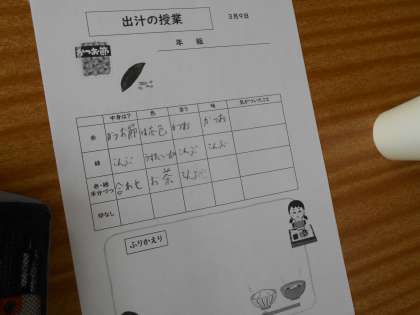 出汁の授業
3月9日
かつお節
年 組
中身は? 色 香り 味 気がついたこと
赤 かつお節 はだ色 かつお かつお
緑 こんぶ こんぶ こんぶ
赤・緑 半分づつ お茶 こんぶ
印なし
ふりかえり